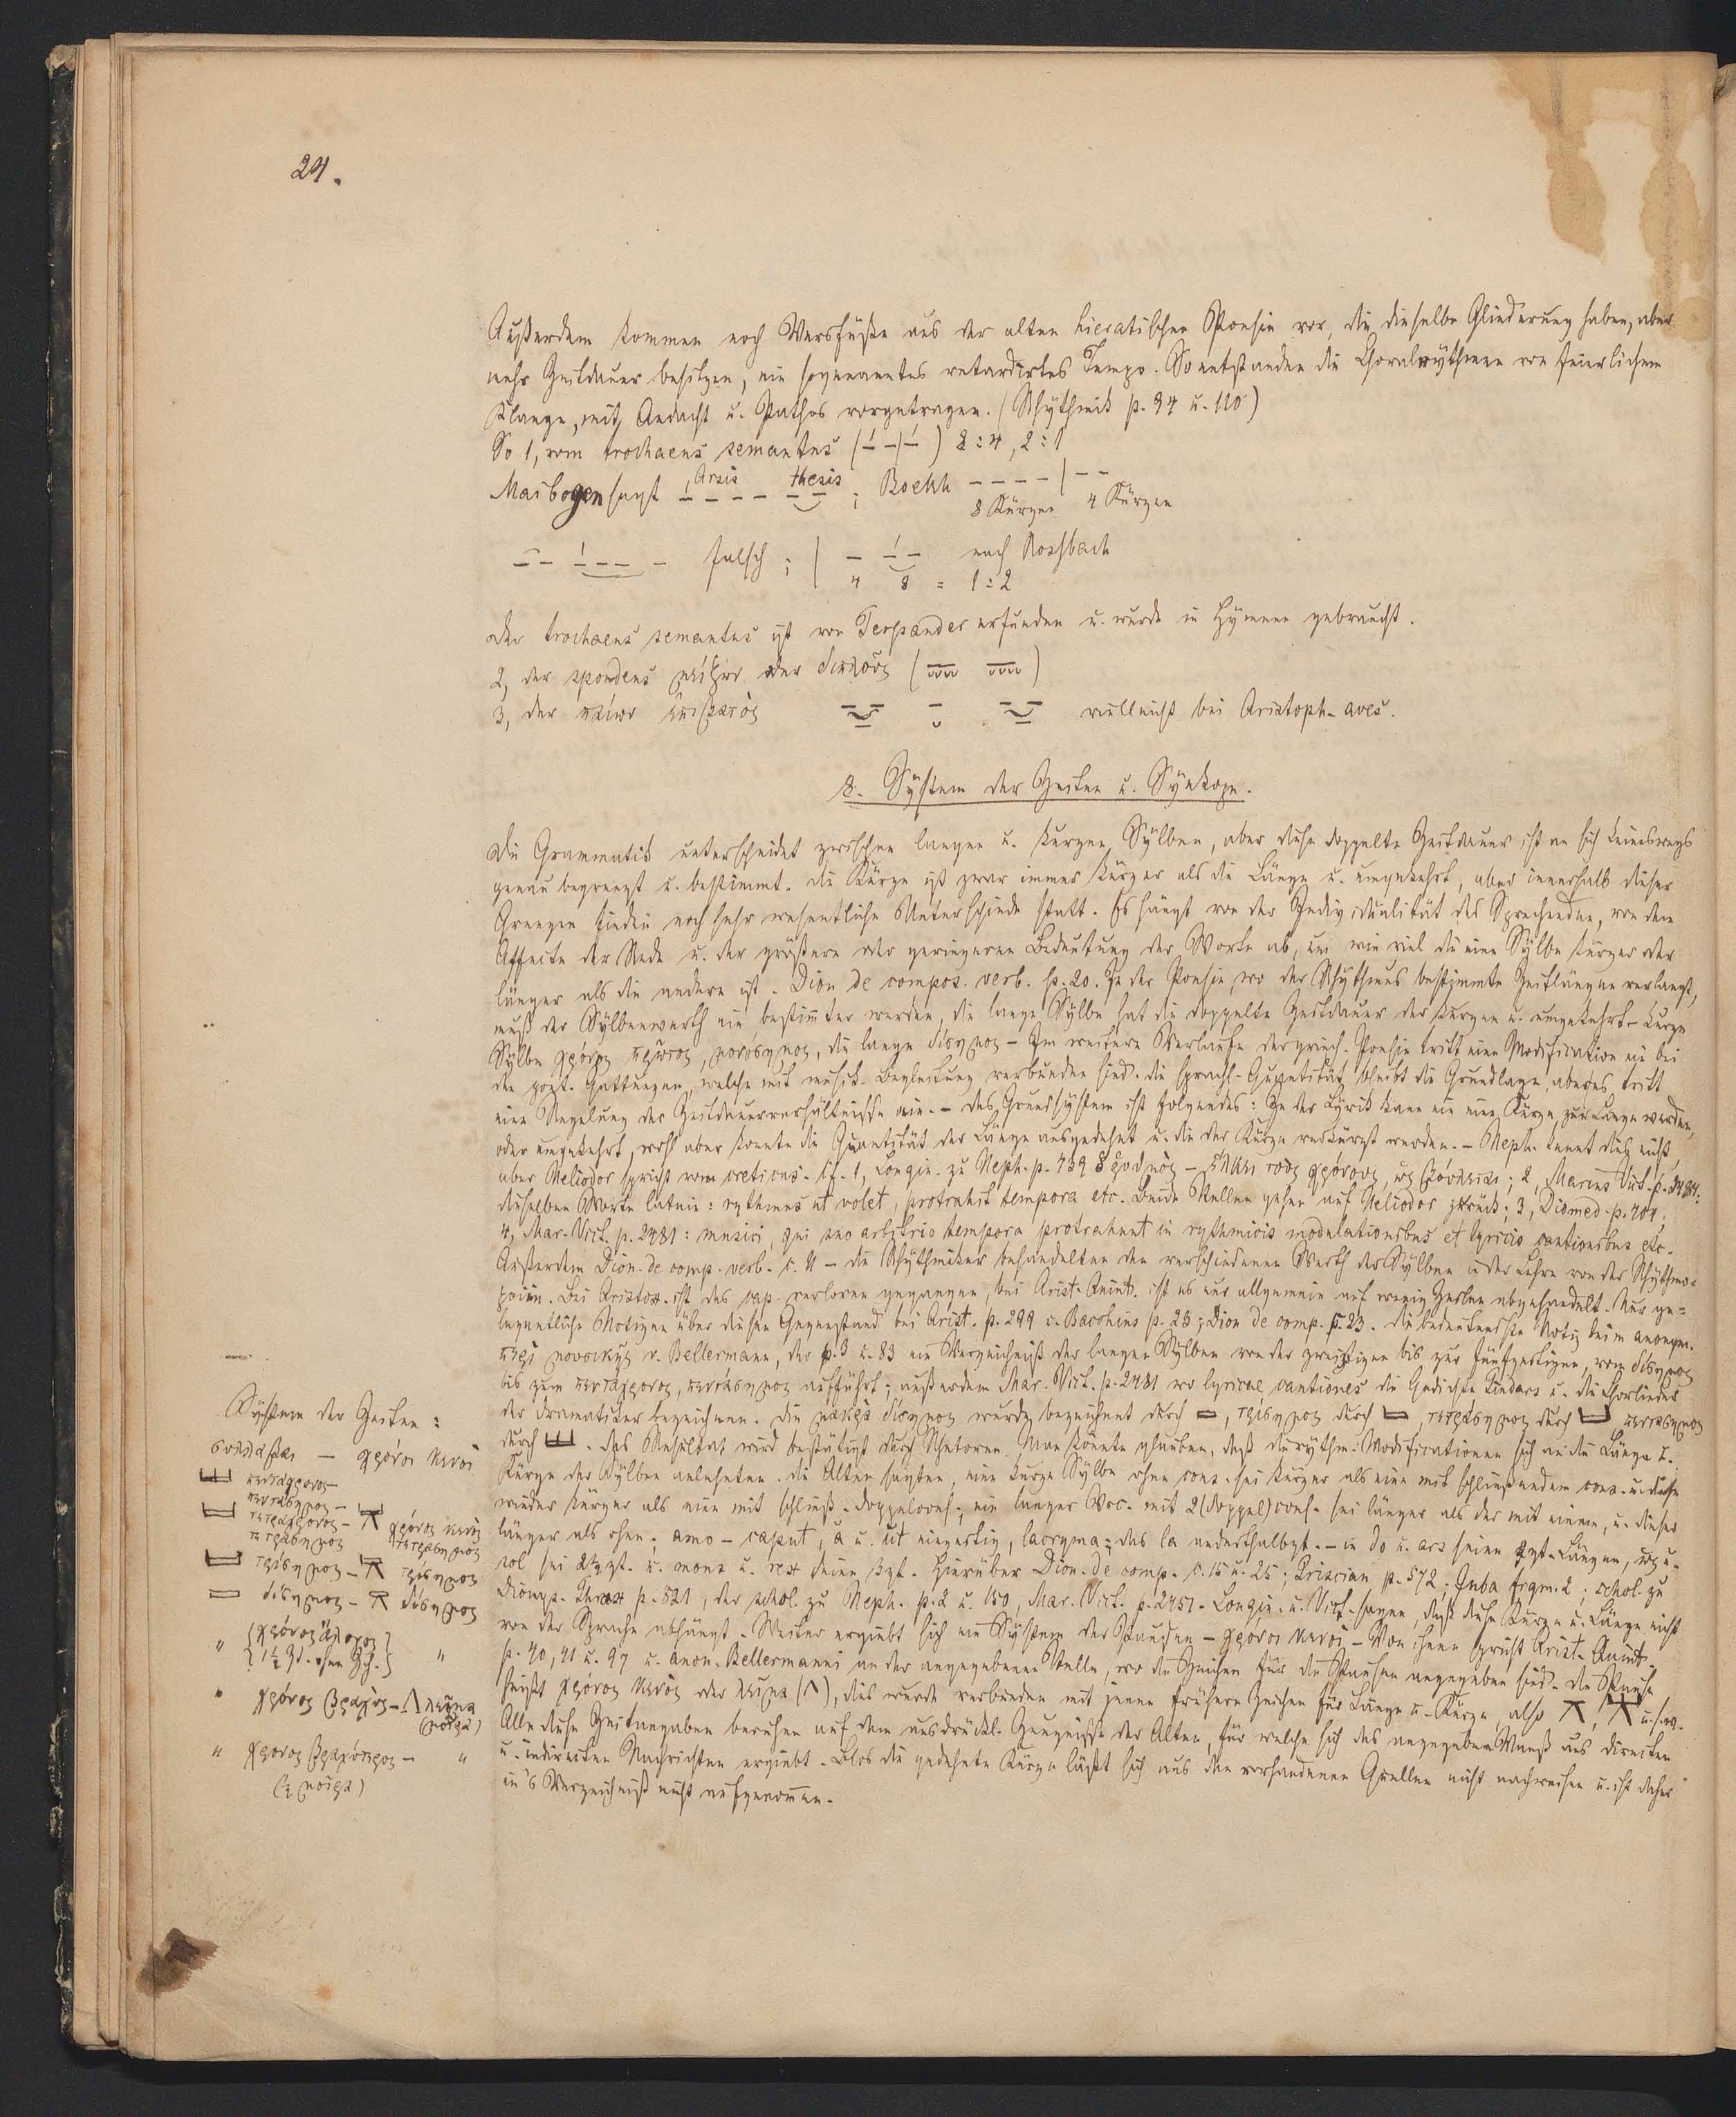 24.
Außerdem kommen noch Versfüße aus der alten hieratischen Poesie vor, die dieselbe Gliederung haben, aber
mehr Zeitdauer besitzen, ein sogenanntes retardirtes Tempo. So entstanden die Choralrythmen von feierlichem
Klange, mit Andacht u. Pathos vorgetragen. (Rhythmik p. 94 u. 110)
So 1, vom trochaeus semantus (–́ –|–́) 8 : 4, 2 : 1
Maibogen sagt Arsis – – – – thesis – – ; Boekh – – – – | – –
8 Kürzen 4 Kürzen
– – –́ – – – falsch ; | – –́ – nach Rossbach
4 8 = 1 : 2
der trochaeus semantus ist von Terpander erfunden u. wurde in Hymnen gebraucht.
2, der spondeus μείζων oder διπλοῦς
3, der παίων ἐπιβατὸς vielleicht bei Aristoph. aves.
8. System der Zeiten u. Synkope.
Die Grammatik unterscheidet zwischen langen u. kurzen Sylben, aber diese doppelte Zeitdauer ist an sich keineswegs
genau begrenzt u. bestimmt. Die Kürze ist zwar immer kürzer als die Länge u. umgekehrt, aber innerhalb dieser
Grenzen finden noch sehr wesentliche Unterschiede statt. Es hängt von der Individualität des Sprechenden, von dem
Affecte der Rede u. der größern oder geringeren Bedeutung der Worte ab, um wie viel die eine Sylbe kürzer oder
länger als die andere ist. Dion de compos. verb. p. 20. In der Poesie, wo der Rhythmus bestimmte Zeitlängen verlangt,
muß der Sylbenwerth ein bestimmter werden, die lange Sylbe hat die doppelte Zeitdauer der kurzen u. umgekehrt. Kurze
Sylbe χρόνος πρῶτος, μονόσημος, die lange δίσημος – Im weitern Verlaufe der griech. Poesie tritt eine Modification ein bei
den poet. Gattungen, welche mit musik. Begleitung verbunden sind. Die sprachl. Quantität bleibt die Grundlage, aber es tritt
eine Regelung der Zeitdauerverhältnisse ein. – das Grundsystem ist folgendes: In der Lyrik kann nie eine Kürze zur Länge werden,
oder umgekehrt, wohl aber konnte die Quantität der Länge ausgedehnt u. die der Kürze verkürzt werden. – Heph. kennt dies nicht,
aber Heliodor spricht vom creticus. cf. 1, Longin. zu Heph. p. 139 ὁ ῥυθμὸς – ἕλκει τοὺς χρόνους, ὡς βούλεται; 2, Marius Vict. p. 2484.
dieselben Worte latein: rythmus ut volet, protrahit tempora etc. Beide Stellen gehen auf Heliodor zurück; 3, Diomed. p. 401;
4, Mar. Vict. p. 2481: musici, qui suo arbitrio tempora protrahunt in rythmicis modulationibus et lyricis cantionibus etc.
Außerdem Dion. de comp. verb. c. 11 – die Rhythmiker behandelten den verschiedenen Werth der Sylben in der Lehre von der Rhythmo-
poiie. Bei Aristox. ist das cap. verloren gegangen, bei Arist. Quint. ist es nur allgemein auf wenig Zeilen abgehandelt. Nur ge-
legentliche Notizen über diesen Gegenstand bei Arist. p. 299 u. Bacchius p. 23; Dion de comp. p. 23. Die bedeutendste Notiz beim anonym.
περὶ μουσικῆς v. Bellermann, der p. 3 u. 83 ein Verzeichniß der langen Sylben von der zweizeitigen bis zur fünfzeitigen, vom δίσημος
bis zum πεντάχρονος, πεντάσημος aufführt; außerdem Mar. Vict. p. 2481 wo lyricae cantiones die Gedichte Pindars u. die Chorlieder
der Dramatiker bezeichnen. Die μακρὰ δίσημος wurde bezeichnet durch, τρίσημος durch, τετράσημος durch πεντάσημος
durch. Das Resultat wird bestätigt durch Rhetoren. Man könnte glauben, daß die rythm. Modificationen sich an die Länge u.
Kürze der Sylben anlehnten. Die Alten sagten, eine kurze Sylbe ohne cons. sei kürzer als eine mit schließendem cons. u. diese
wieder kürzer als eine mit schließ. doppelcons.; ein langer Voc. mit 2 (doppel)cons. sei länger als der mit einem, u. dieser
länger als ohne; amo – caput, a u. ut einzeitig, lacryma; das la anderthalbzt. – in do u. ars seien 2zt. Längen,
sol sei 2½zt. u. mons u. rex seien 3zt. Hierüber Dion. de comp. c. 15 u. 25; Priscian p. 572; Juba frgm. 2; schol. zu
Dionys. Thrax p. 821, der schol. zu Heph. p. 2 u. 150, Mar. Vict. p. 2451. Longin. u. Vict. sagen, daß diese Kürze u. Länge nicht
von der Sprache abhängt. Weiter ergiebt sich ein System der Pausen – χρόνοι κενοὶ – Von ihnen spricht Arist. Quint.
p. 40, 41 u. 97 u. anon. Bellermanni an der angegebenen Stelle, wo die Zeichen für die Pausen angegeben sind. Die Pause
heißt χρόνος κενὸς oder λεῖμμα (Λ), dies wurde verbunden mit jenen frühern Zeichen für Länge u. Kürze, also u.s.w.
Alle diese Zeitangaben beruhen auf dem ausdrückl. Zeugnisse der Alten, für welche sich das angegebene Maaß aus directen
u. indirecten Nachrichten ergiebt. Blos die gedehnte Kürze läßt sich aus den vorhandenen Quellen nicht nachweisen u. ist daher
in's Verzeichniß nicht aufgenommen.
System der Zeiten:
συλλαβαι – χρόνοι κενοὶ
πεντάχρονος –
πεντάσημος –
τετράχρονος – χρόνος κενὸς
τετράσημος τετράσημος
τρίσημος – τρίσημος
δίσημος – δίσημος
" {χρόνος ἄλογος "
χρόνος βραχὺς – Λ λεῖμμα
" χρονος βραχύτερος – "
(½ μοῖρα)